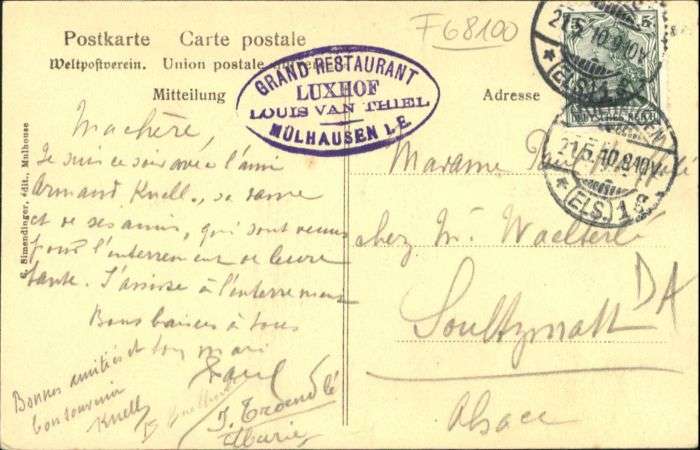 F68100
Postkarte Carte postale
Weltpostverein. Union postale
Mitteilung
Adresse
GRAND RESTAURANT
LUXHOF
LOUIS VAN THIEL
MÜLHAUSEN I.E.
5
DEUTSCHES REICH
21.5.10.9-10V.
* (ELS.) 1 g
21.5.10.9-10V.
* (ELS.) 1 g
Ma chère,
Je suis ce soir avec l'ami
Armand Knell, sa dame
et de ses amis, qui sont venus
pour l'enterrement de leur
tante. J'assiste à l'enterrement
Bons baisers à tous
et ton mari
Paul
Bonnes amitiés et
bon souvenir
Knell
Marie
Madame Paul
chez M. Waelterlé
Soultzmatt
Alsace
DA
C. Simendinger, édit., Mulhouse